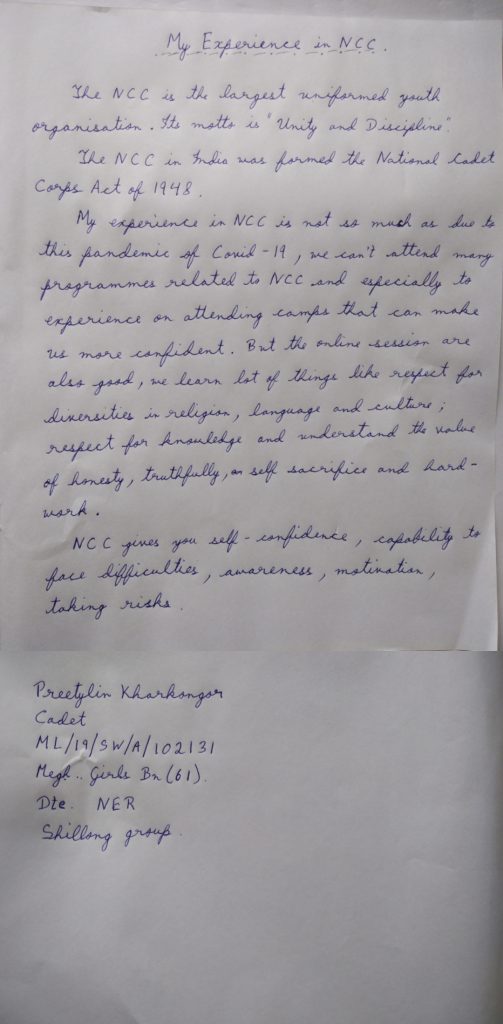 My Experience in NCC.
The NCC is the largest uniformed youth
organisation. Its motto is "Unity and Discipline".
The NCC in India was formed the National Cadet
Corps Act of 1948.
My experience in NCC is not so much as due to
this pandemic of Covid-19, we can't attend many
programmes related to NCC and especially to
experience on attending camps that can make
us more confident. But the online session are
also good, we learn lot of things like respect for
diversities in religion, language and culture;
respect for knowledge and understand the value
of honesty, truthfully, on self sacrifice and hard-
work.
NCC gives you self-confidence, capability to
face difficulties, awareness, motivation,
taking risks.
Preetylin Kharkongor
Cadet
ML/19/SW/A/102131
Megh.. Girls Bn (61).
Dte. NER
Shillong group.